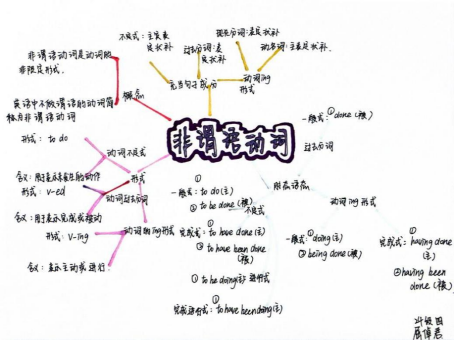 不定式：主宾表
定状补
过去分词：表
定状补
现在分词：表定状补
动名词：主表定状补.
充当句子成分
动词ing
形式
非谓语动词是动词的
非限定形式.
概念
英语中不做谓语的动词
称为非谓语动词
非谓语动词
形式
形式：to do
动词不定式
含义：用来表示未发生的动作
形式：V-ed
动词过去分词
含义：用来表示完成或被动
形式：V-ing
动词的ing形式
含义：表示主动或进行.
时态语态
一般式：①done(被)
过去分词
不定式
①
一般式：to do(主)
② to be done(被)
①
完成式：to have done(主)
② to have been done
(被)
① to be doing(主) 进行式
①
完成进行式：to have been doing(主)
动词ing形式
一般式：①doing(主)
②being done(被)
完成式：①having done
(主)
②having been
done(被)